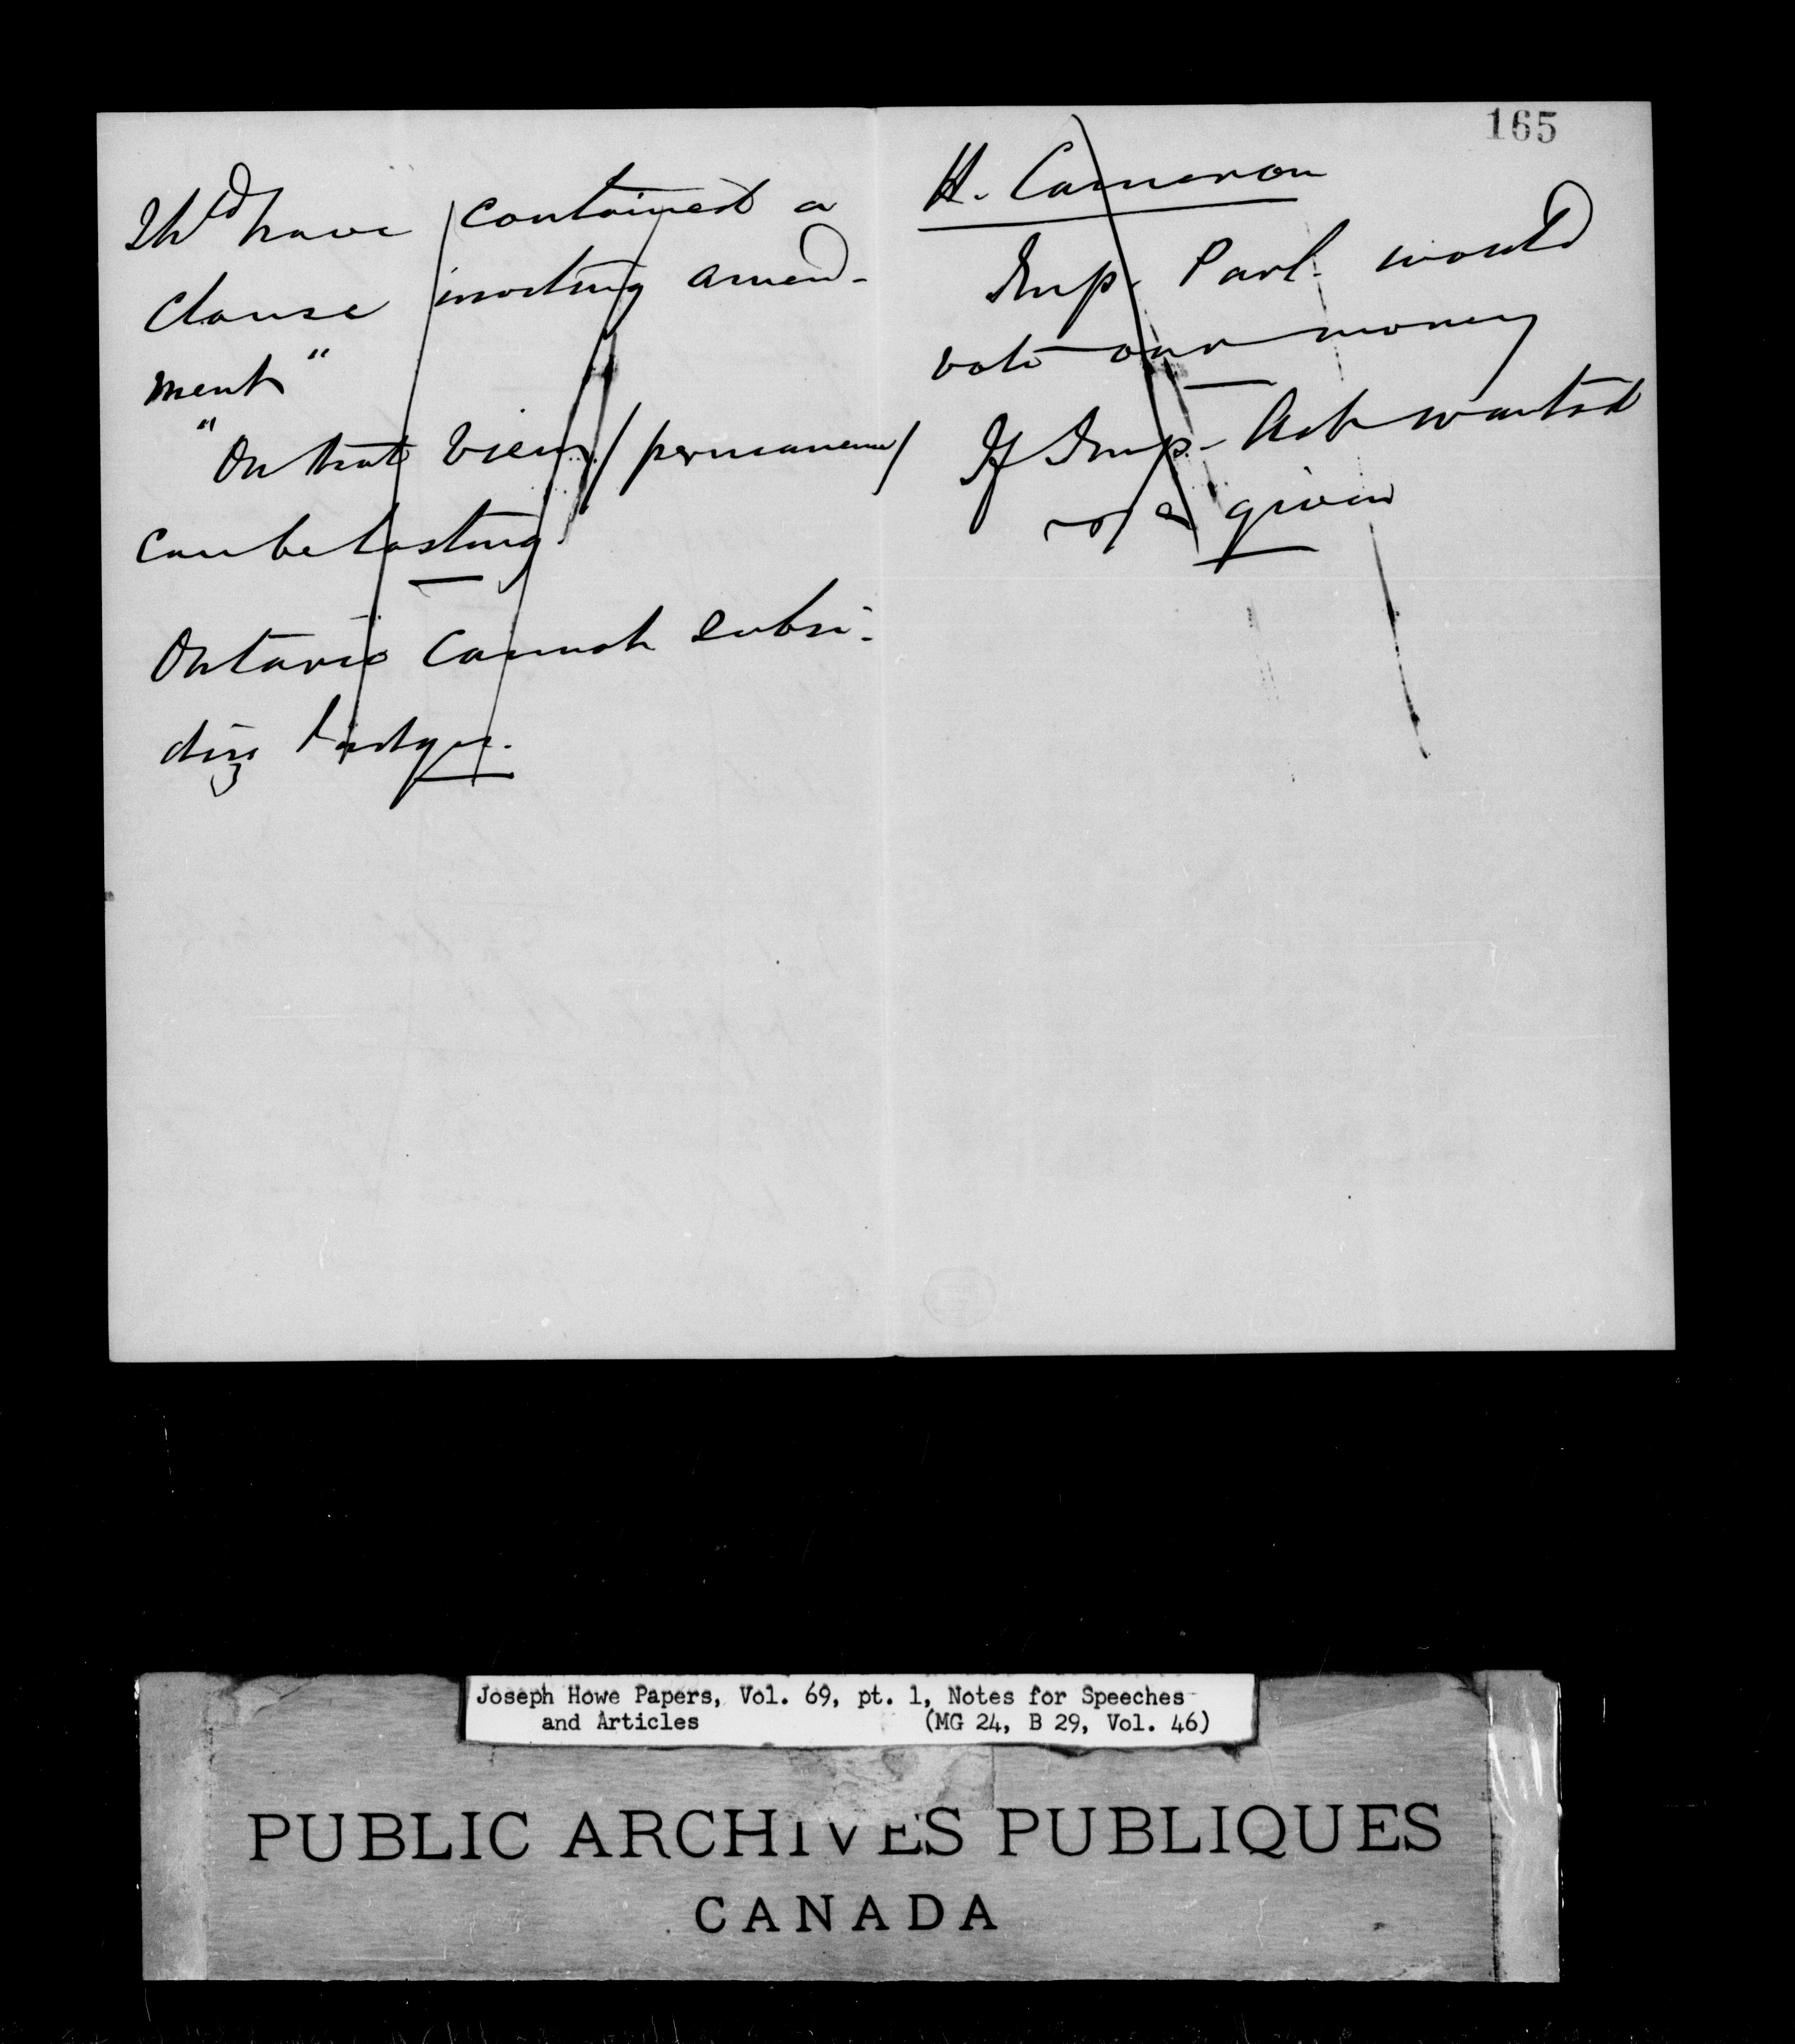 Shd have contained a
clause inviting amend-
ment"
"On that view / permanent /
can be lasting."
Ontario cannot subsi-
diz
165
H. Cameron
Imp. Parl. would
vote our money
If Imp. Act wanted
given
Joseph Howe Papers, Vol. 69, pt. 1, Notes for Speeches
and Articles (MG 24, B 29, Vol. 46)
PUBLIC ARCHIVES PUBLIQUES
CANADA